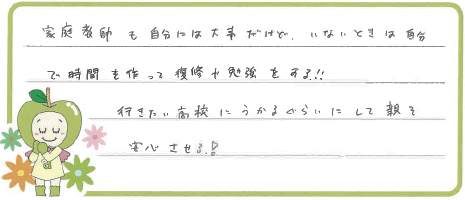 家庭教師も自分には大事だけど、いないときは自分
で時間を作って復修や勉強をする!!
行きたい高校にうかるぐらいにして親を
安心させる!